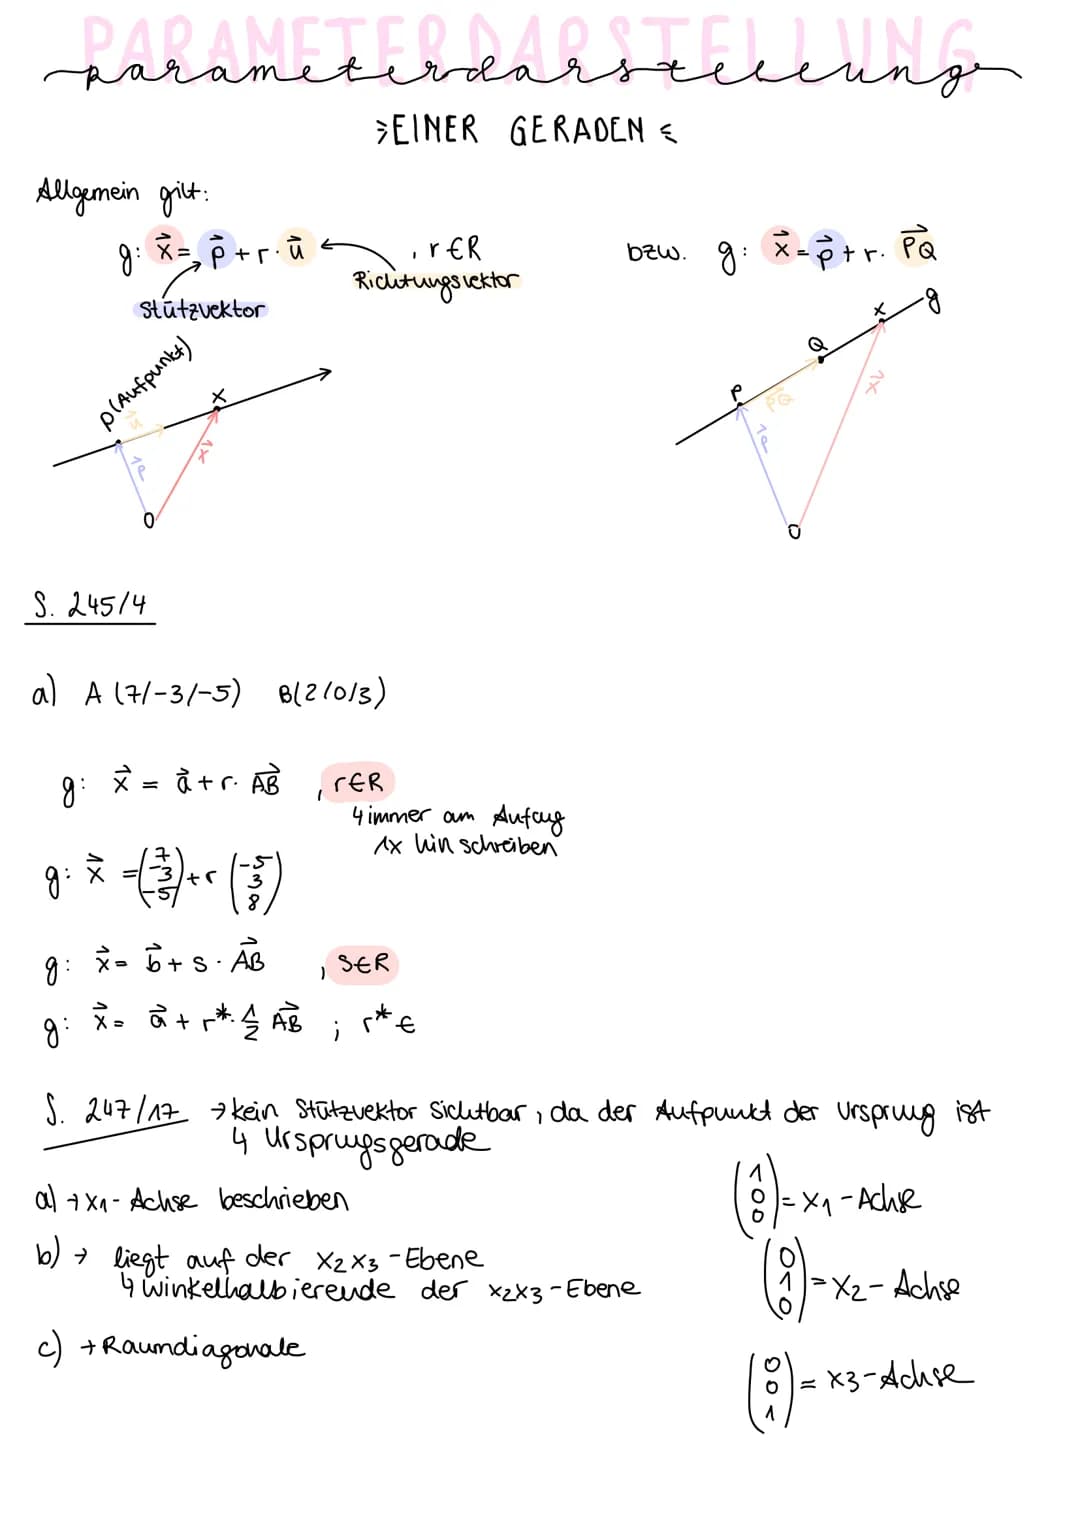 PARAMETERDARSTELLUNG
parameterdarstellung
EINER GERADEN
Allgemein gilt:
g: x⃗ = p⃗ + r · u⃗ , r ∈ R
Richtungsvektor
Stützvektor
bzw. g: x⃗ = p⃗ + r · PQ⃗
P (Aufpunkt)
u⃗
X
p⃗
x⃗
O
g
X
Q
P
PQ⃗
x⃗
p⃗
O
S. 245/4
a) A (7/-3/-5) B(2/0/3)
g: x⃗ = a⃗ + r · AB⃗ , r ∈ R
↳ immer am Anfang
1x hinschreiben
g: x⃗ = (7 -3 -5) + r (-5 3 8)
g: x⃗ = b⃗ + s · AB⃗ , s ∈ R
g: x⃗ = a⃗ + r* · 1/2 AB⃗ ; r* ∈
S. 247/17 → kein Stützvektor Sichtbar, da der Aufpunkt der Ursprung ist
↳ Ursprungsgerade
a) → x1 - Achse beschrieben
(1 0 0) = x1 - Achse
b) → liegt auf der x2x3 - Ebene
↳ Winkelhalbierende der x2x3 - Ebene
(0 1 0) = x2 - Achse
c) → Raumdiagonale
(0 0 1) = x3 - Achse